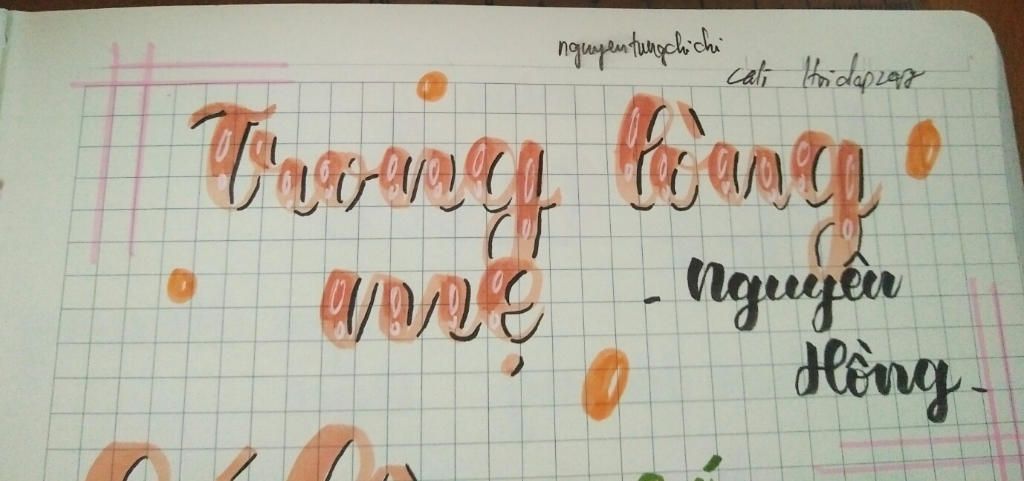 nguyentungchichi
cati Hoidap247
Trong lòng
mẹ
- Nguyên
Hồng -